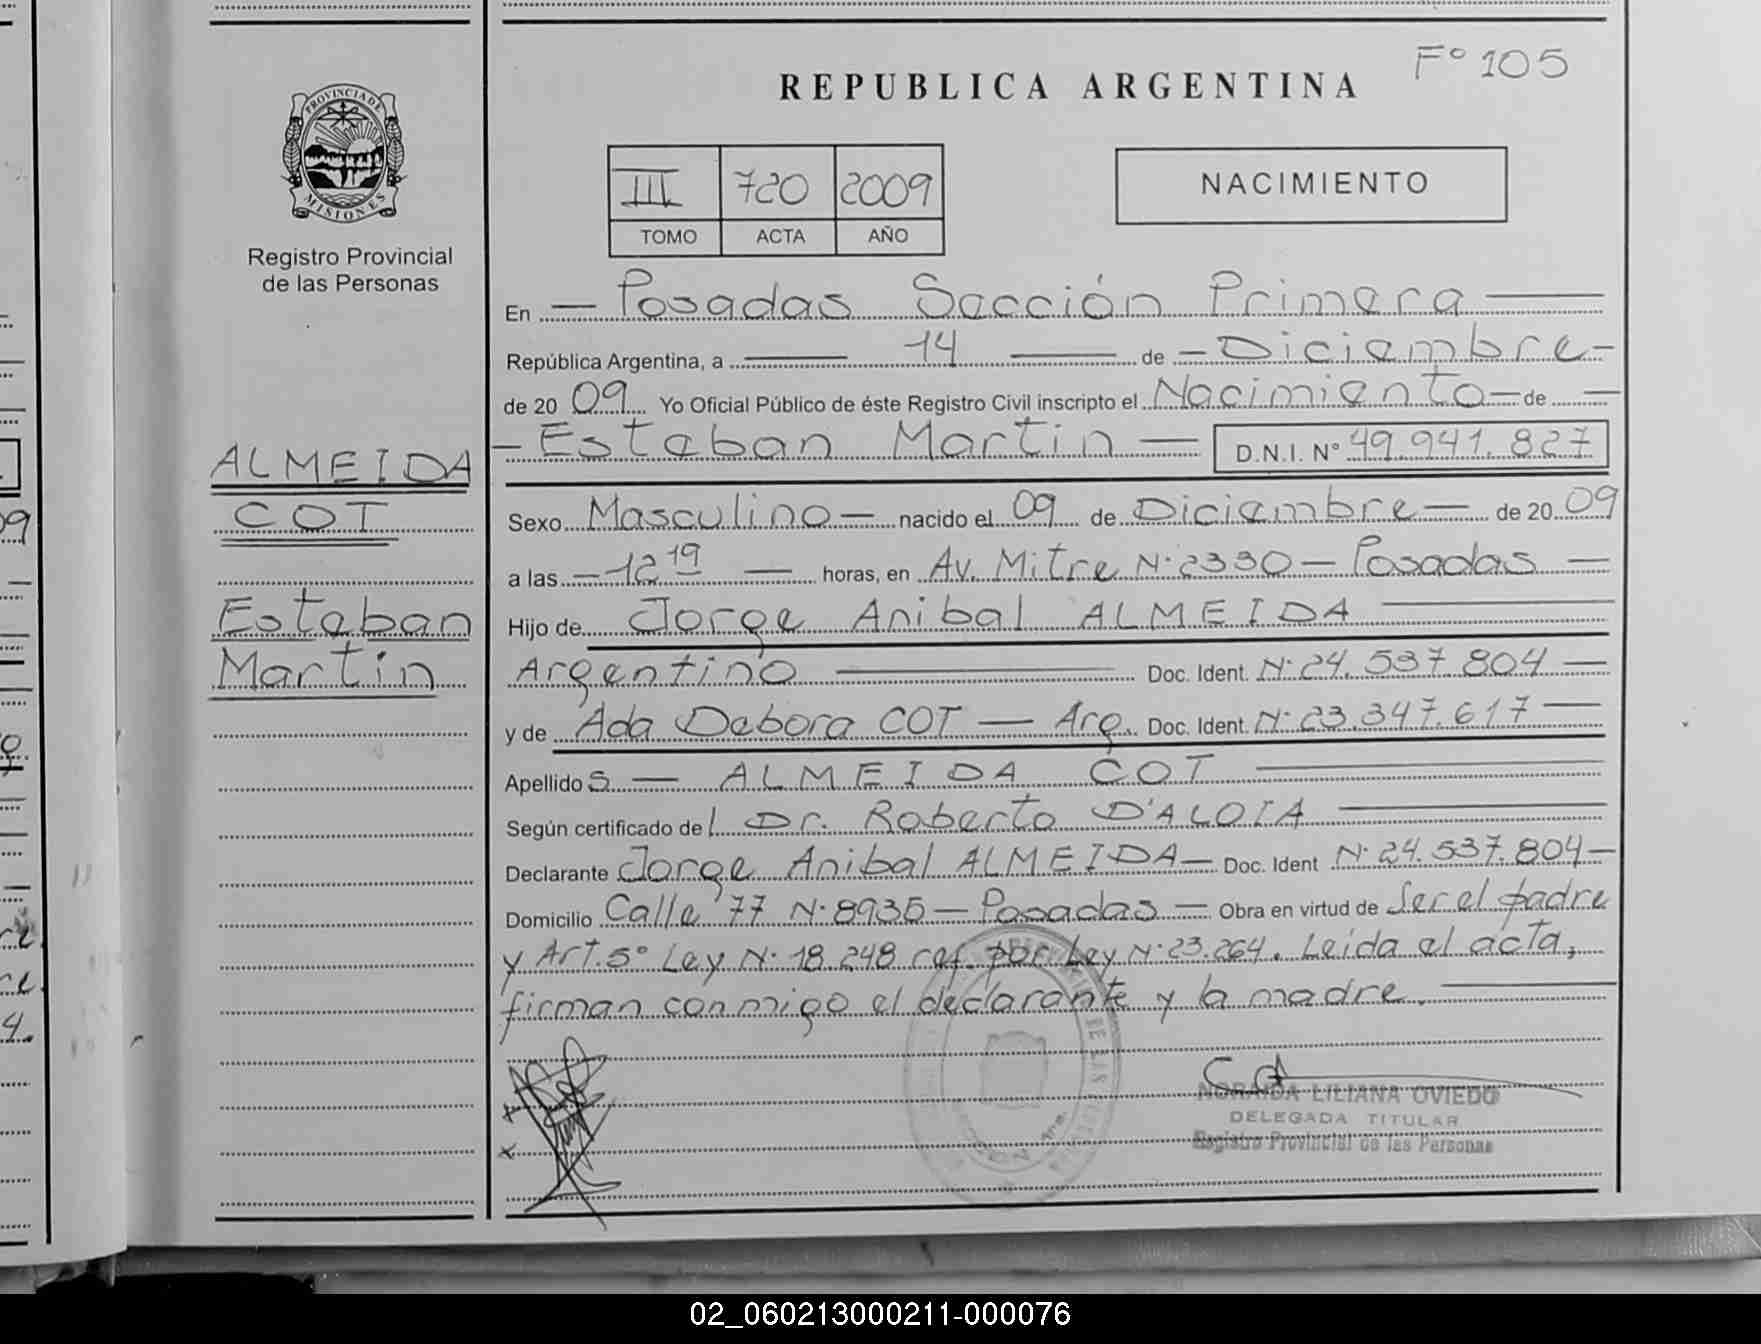 Fº 105
REPUBLICA ARGENTINA
PROVINCIA DE
MISIONES
Registro Provincial
de las Personas
III 720 2009
TOMO ACTA AÑO
NACIMIENTO
En — Posadas Sección Primera —
República Argentina, a — 14 — de — Diciembre —
de 20 09 Yo Oficial Público de éste Registro Civil inscripto el Nacimiento — de —
— Esteban Martin — D.N.I. Nº 49.941.827
ALMEIDA
COT
Esteban
Martin
Sexo Masculino — nacido el 09 de Diciembre — de 20 09
a las — 12 19 — horas, en Av. Mitre Nº 2330 — Posadas —
Hijo de Jorge Anibal ALMEIDA —
Argentino — Doc. Ident. Nº 24.537.804 —
y de Ada Debora COT — Arg. Doc. Ident. Nº 23.347.617 —
Apellido s — ALMEIDA COT —
Según certificado de l Dr. Roberto D'ALOIA —
Declarante Jorge Anibal ALMEIDA — Doc. Ident Nº 24.537.804 —
Domicilio Calle 77 Nº 8935 — Posadas — Obra en virtud de Ser el padre
y Art. 5º Ley Nº 18.248 ref. por Ley Nº 23.264. Leida el acta,
firman conmigo el declarante y la madre. —
NORAIDA LILIANA OVIEDO
DELEGADA TITULAR
Registro Provincial de las Personas
02_060213000211-000076